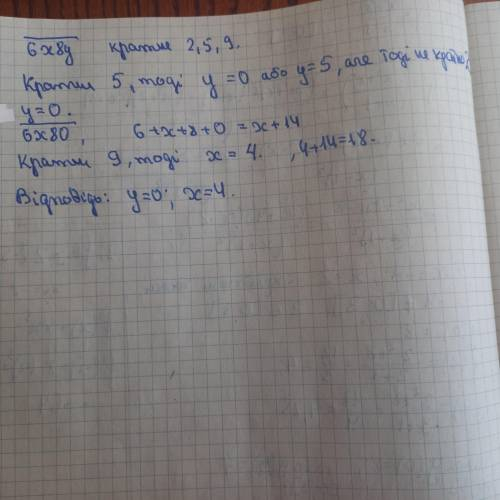 6x8y кратне 2,5,9.
Кратне 5, тоді y=0 або y=5, але тоді не кратно 2
y=0.
6x80, 6+x+8+0=x+14
Кратне 9, тоді x=4. , 4+14=18.
Відповідь: y=0; x=4.